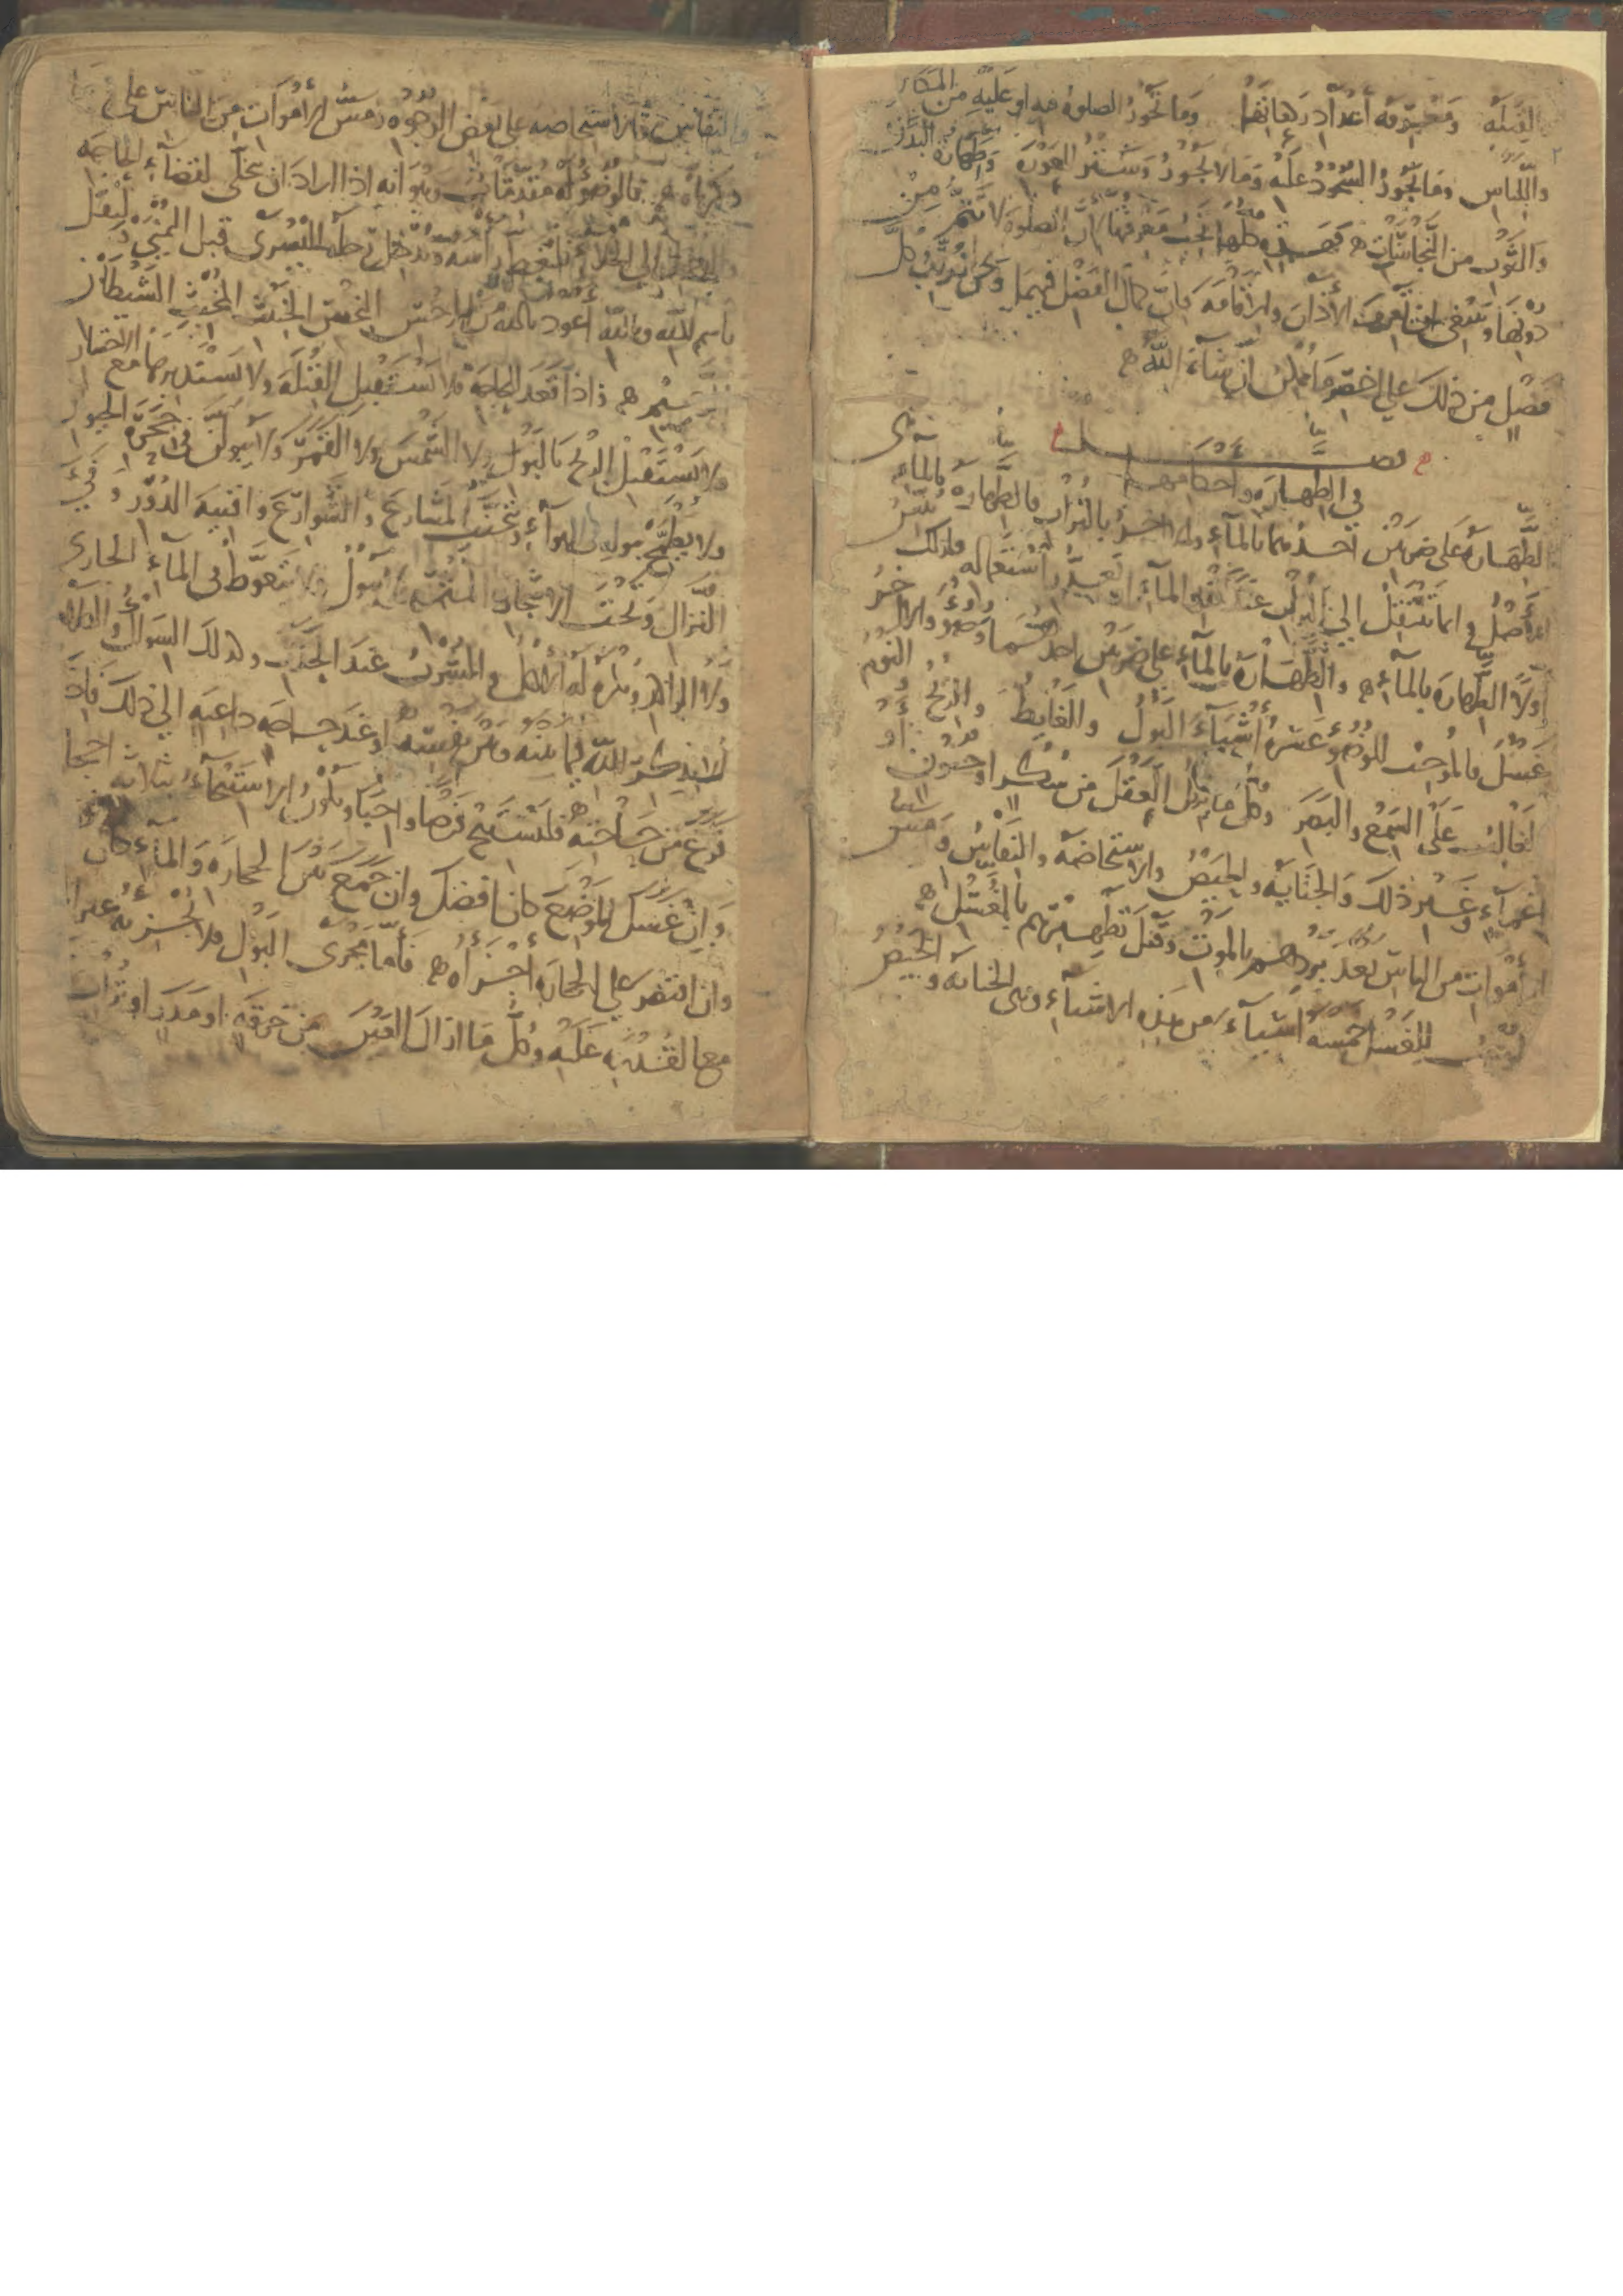 القبلة ومعرفة أعداد ركعاتها وما تجوز الصلوة فيه او عليه من المكان
واللباس وما يجوز السجود عليه وما لا يجوز وستر العورة وطهارة البدن
والثوب من النجاسات فهذه كلها يجب معرفتها لأن الصلوة لا تتم من
دونها وينبغي ان يعرف الأذان والاقامة فان كمال الفضل فيهما ونحن نورد كل
فصل من ذلك على اخصر ما يمكن ان شاء الله
فصل
في الطهارة واحكامها
الطهارة على ضربين احدهما بالماء والاخر بالتراب فالطهارة بالماء هي
الأصل وانما تنتقل الى التراب عند فقد الماء او تعذر استعماله
أولا الطهارة بالماء والطهارة بالماء على ضربين احدهما وضوء والاخر
غسل فالموجب للوضوء عشرة أشياء البول والغايط والريح والنوم
الغالب على السمع والبصر وكل ما يزيل العقل من سكر او جنون او
اغماء وغير ذلك والجنابة والحيض والاستحاضة والنفاس ومس
الأموات من الناس بعد بردهم بالموت وقبل تطهيرهم بالغسل
للغسل خمسة اشياء من هذه الاشياء وهي الجنابة والحيض
والنفاس والاستحاضة على بعض الوجوه ومس الأموات من الناس على
ذكرناه فالوضوء له مقدمات وهو أنه اذا اراد ان يتخلى لقضاء الحاجة
الى الخلاء فليغط رأسه ويدخل رجله اليسرى قبل اليمنى وليقل
باسم الله وبالله أعوذ بالله من الرجس النجس الخبيث المخبث الشيطان
الرجيم فاذا قعد للحاجة فلا يستقبل القبلة ولا يستدبرها مع الاختيار
ولا يستقبل الريح بالبول ولا الشمس ولا القمر ولا يبولن في جحرة
ولا يطمح ببوله في الهواء ويتجنب المشارع والشوارع وافنية الدور وفيء
النزال وتحت الاشجار المثمرة ولا يبول ولا يتغوط في الماء الجاري
ولا الراكد ويكره له الأكل والشرب عند الحدث وكذلك السواك والكلام
الا بذكر الله فيما بينه وبين نفسه او عند حاجة داعية الى ذلك فاذا
فرغ من حاجته فليستنج فرضا واجبا ويكون الاستنجاء بثلاثة احجار
وإن غسل الموضع كان افضل وان جمع بين الحجارة والماء كان
وان اقتصر على الحجارة أجزأه فأما مجرى البول فلا يجزيه غير الماء
مع القدرة عليه وكل ما ازال العين من خرقة او مدر او تراب